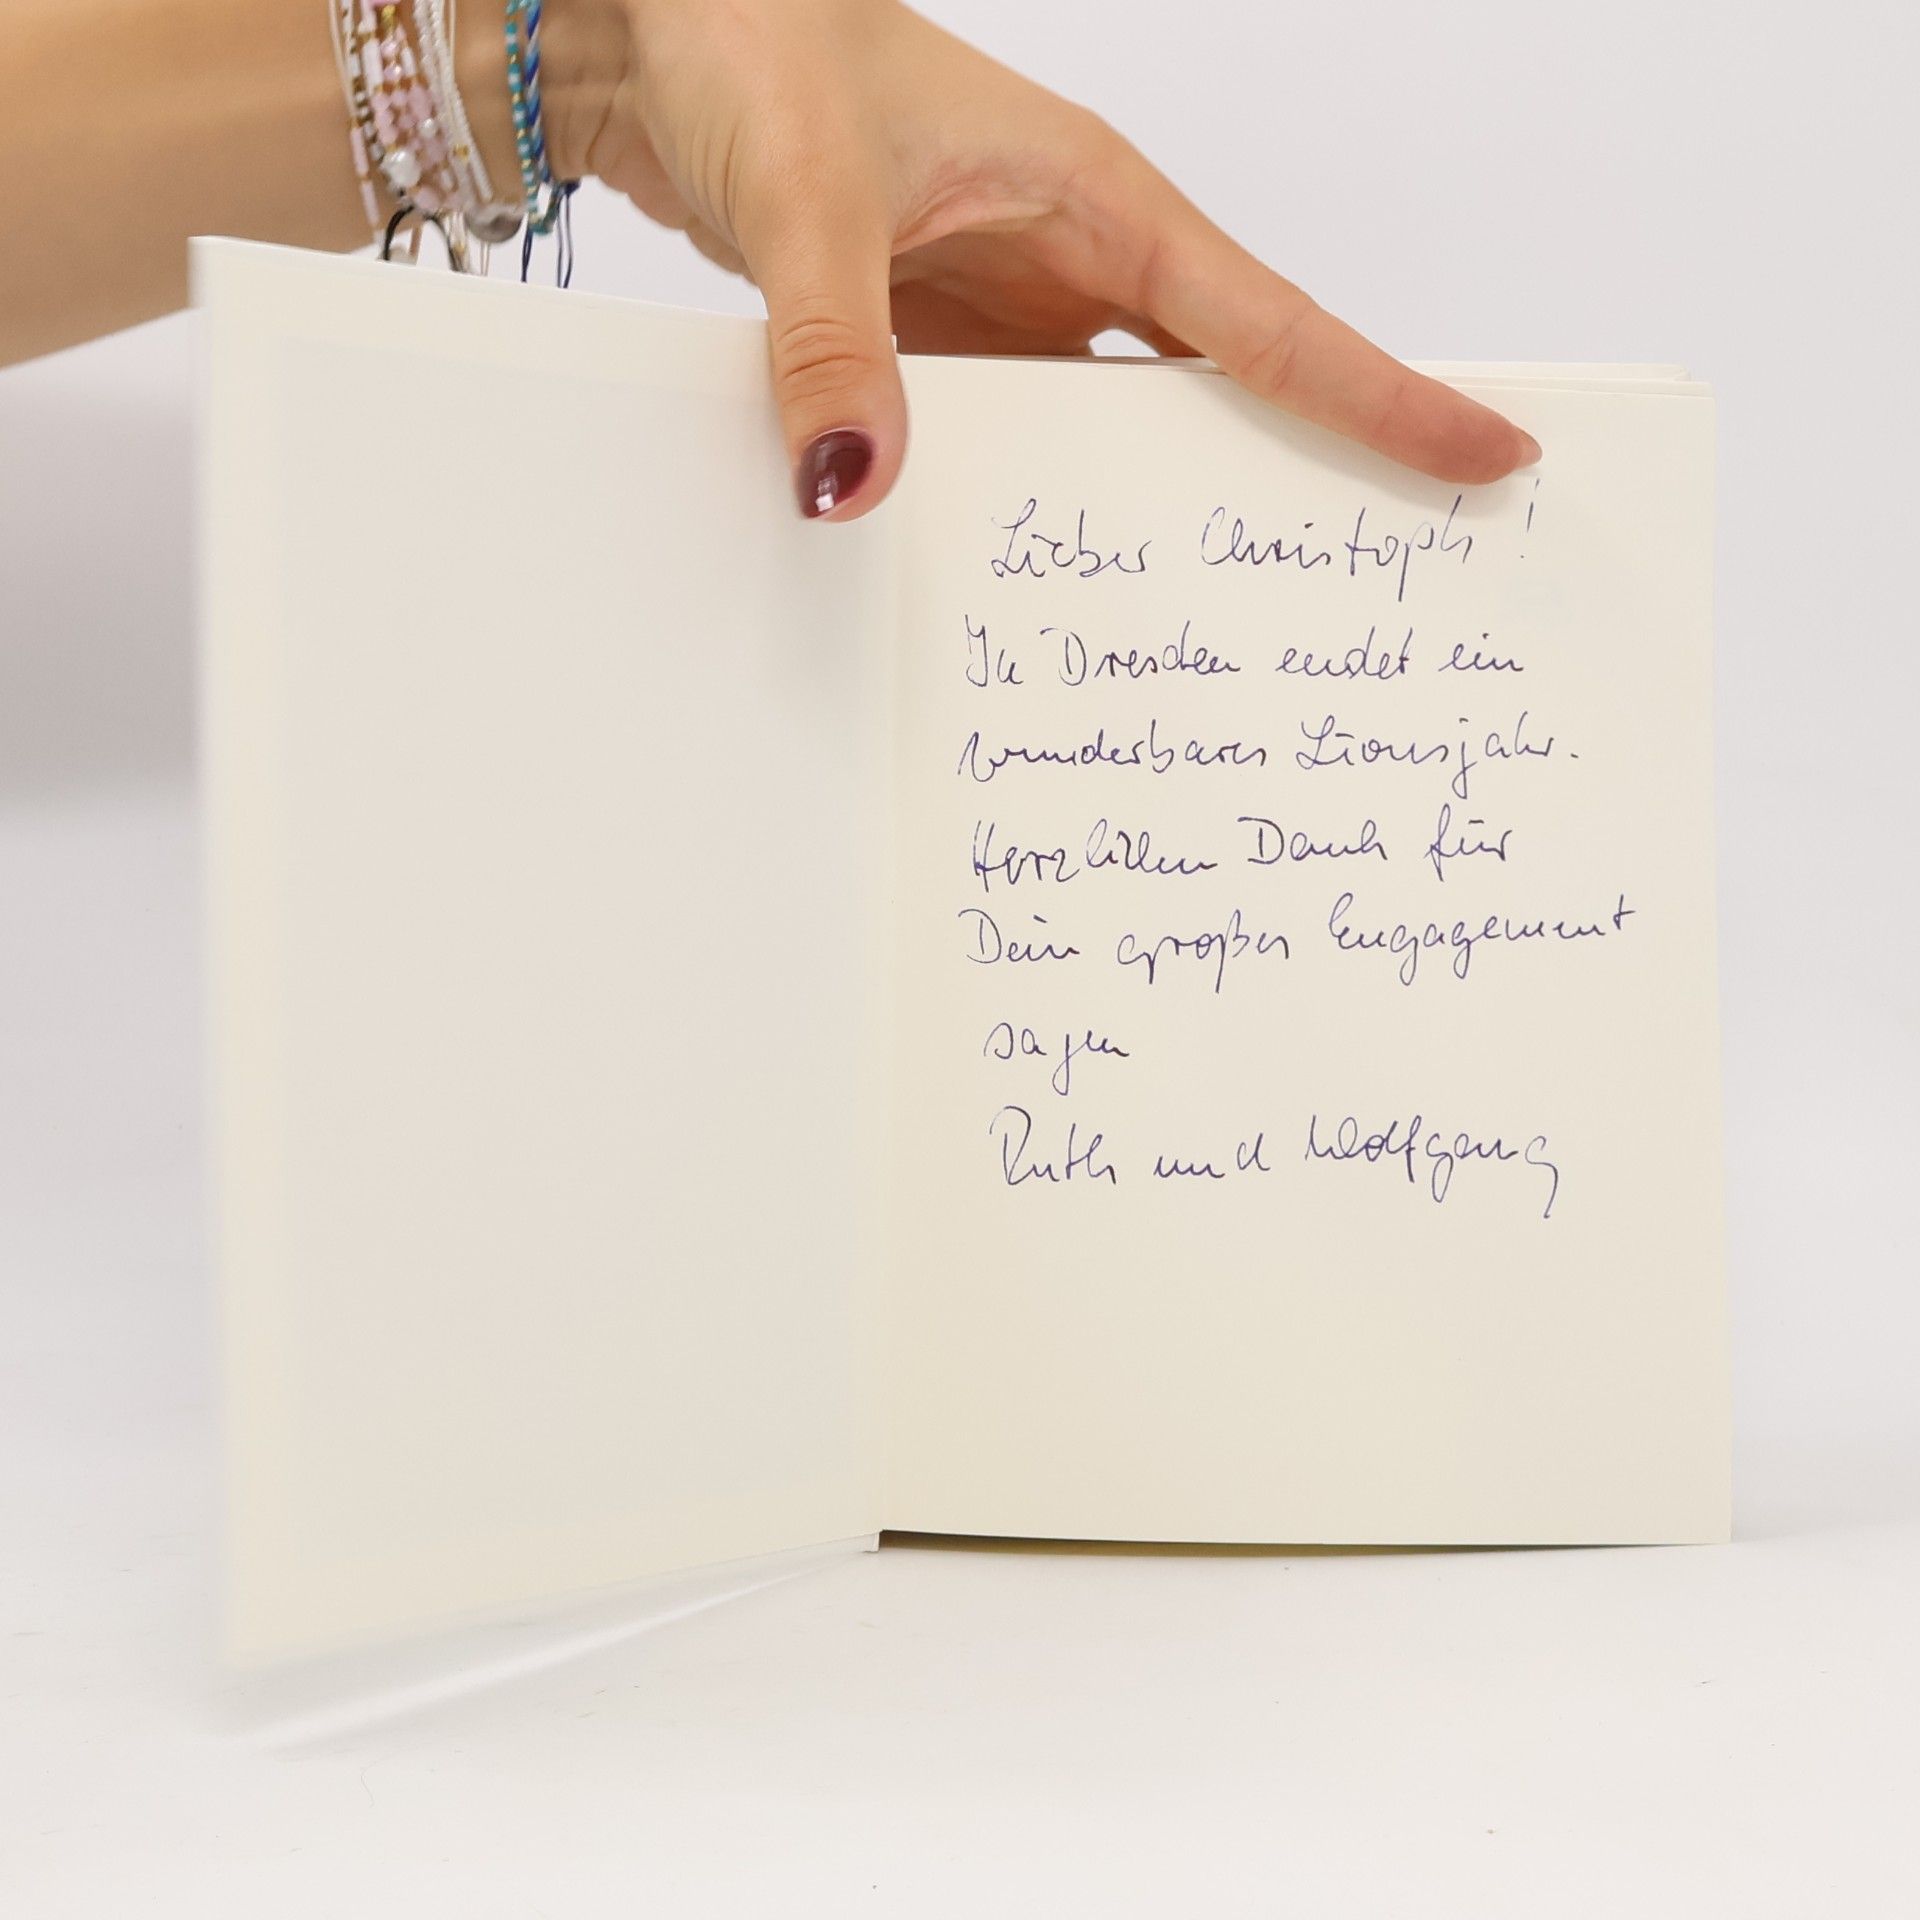 Lieber Christoph!
In Dresden endet ein
wunderbares Lionsjahr.
Herzlichen Dank für
Dein großes Engagement
sagen
Ruth und Wolfgang